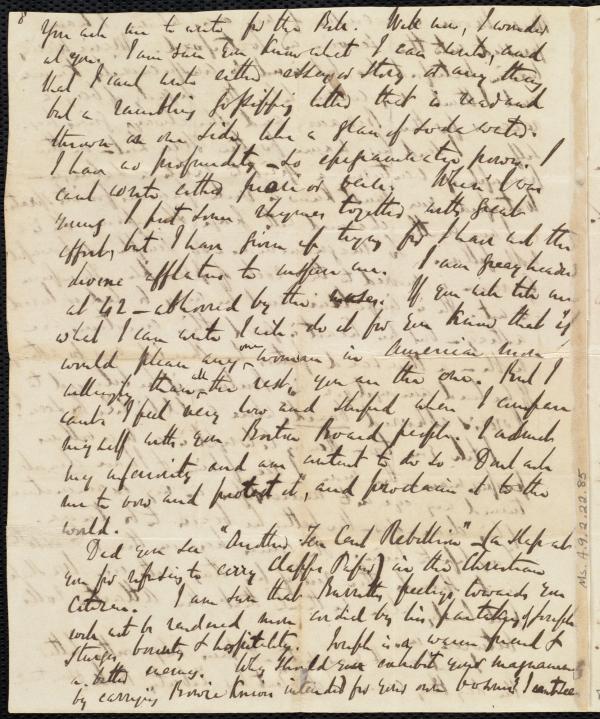 8
You ask me to write for the Bell. Well now, I wonder
at you. I am sure you know what I can write, and
that I can't write either essay or story or any thing
but a rambling gossipping letter that is read and
thrown on one side like a glass of soda water.
I have no profundity – no epigrammatic power. I
can't write either prose or verse. When I was
young I put some rhymes together with great
effort, but I have given up trying for I have not the
divine afflatus to inspire me. I am grey headed
at 42 – abhorred by the muses. If you will tell me
what I can write I will do it for you know that if I
would please any one woman in American more
willingly than all the rest, you are the one. But I
can't. I feel very low and stupid when I compare
myself with your Boston Board people. I admit
my inferiority and am content to do so. Don't ask
me to bow and protest it, and proclaim it to the
world.
Did you see "Another Ten Cent Rebellion" – (a slap at
you for refusing to carry Clapp's Paper) in the Christian
Citizen. I am sure that Burritt's feelings towards you
will not be rendered more cordial by his partaking of Joseph
Sturge's bounty & hospitality. Joseph is a warm friend &
a bitter enemy. Why should you exhibit your magnanimity
by carrying Bowie Knives intended for your own bosoms? I can't see
Ms. A.9.2.22.85